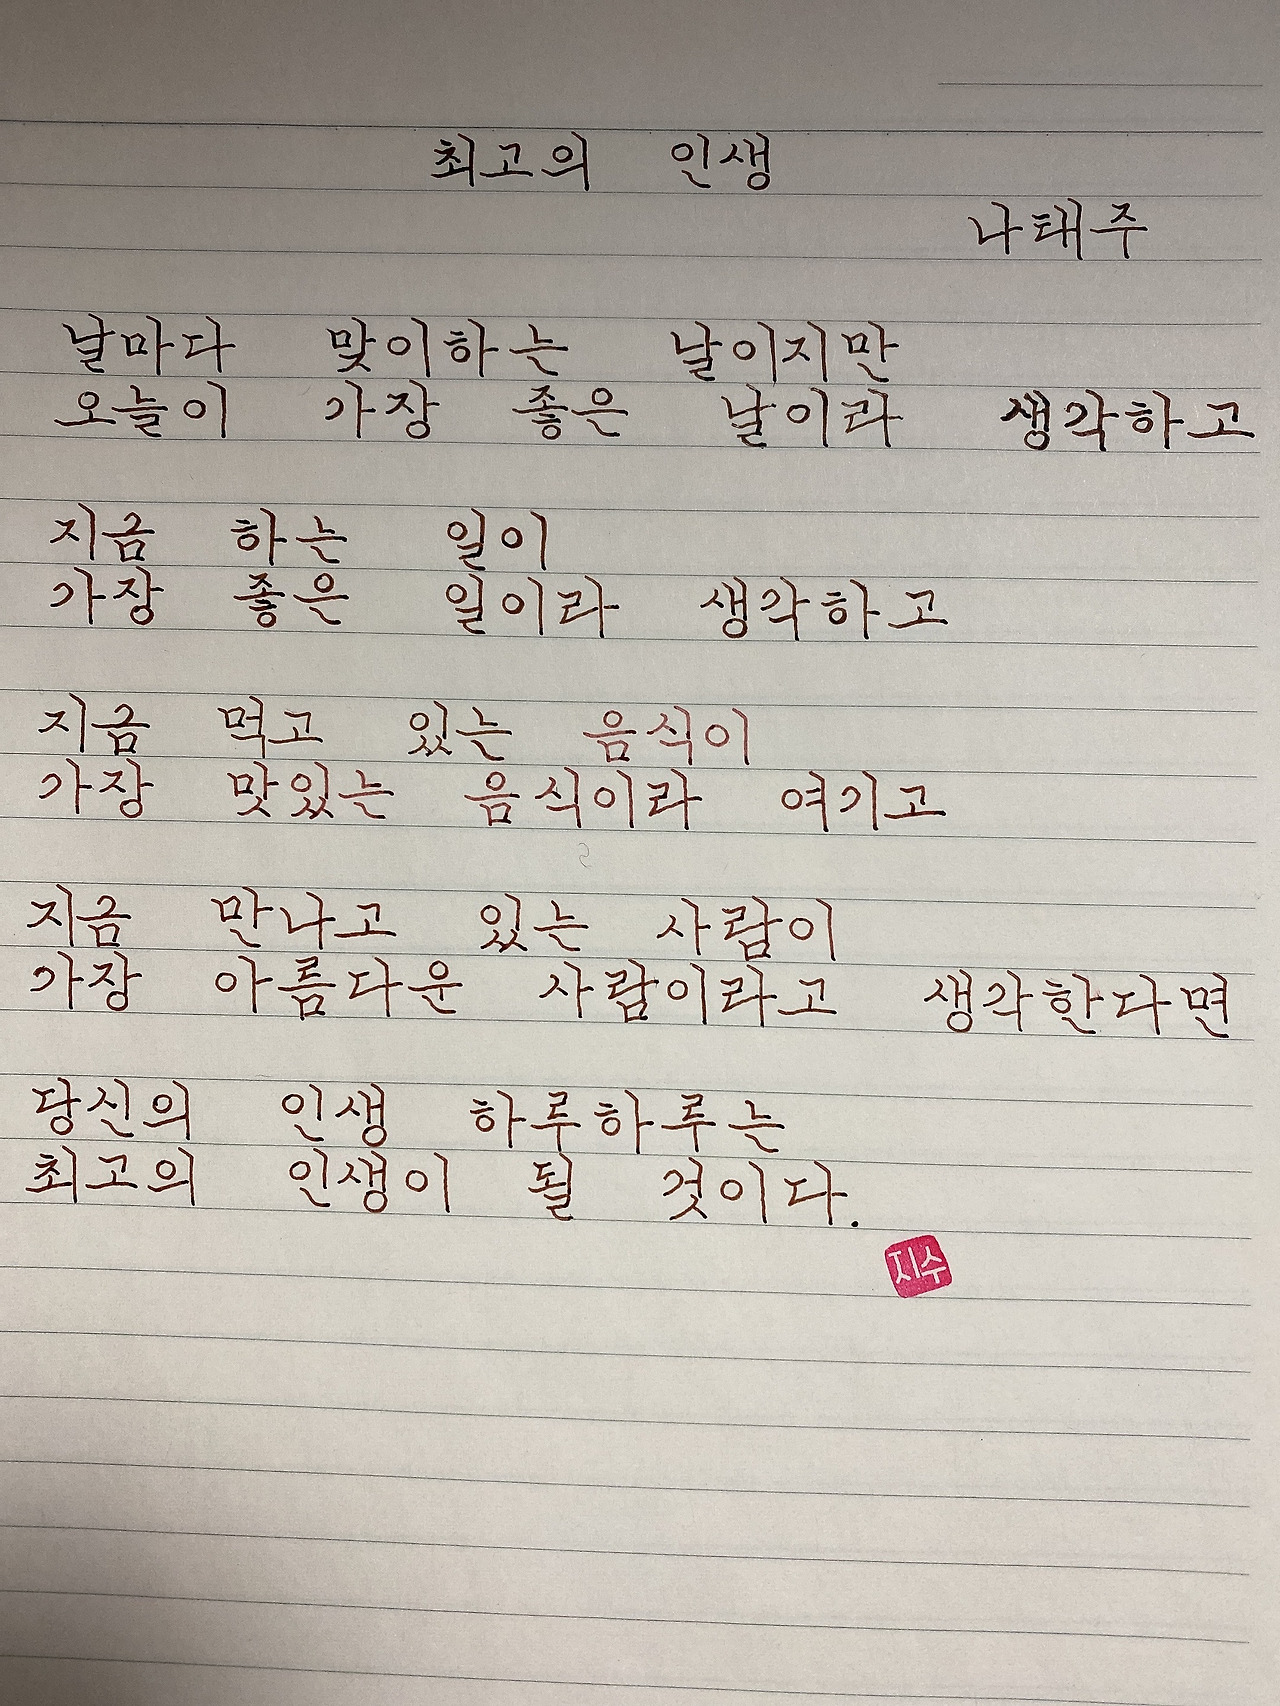 최고의 인생
나태주
날마다 맞이하는 날이지만
오늘이 가장 좋은 날이라 생각하고
지금 하는 일이
가장 좋은 일이라 생각하고
지금 먹고 있는 음식이
가장 맛있는 음식이라 여기고
지금 만나고 있는 사람이
가장 아름다운 사람이라고 생각한다면
당신의 인생 하루하루는
최고의 인생이 될 것이다.
지수